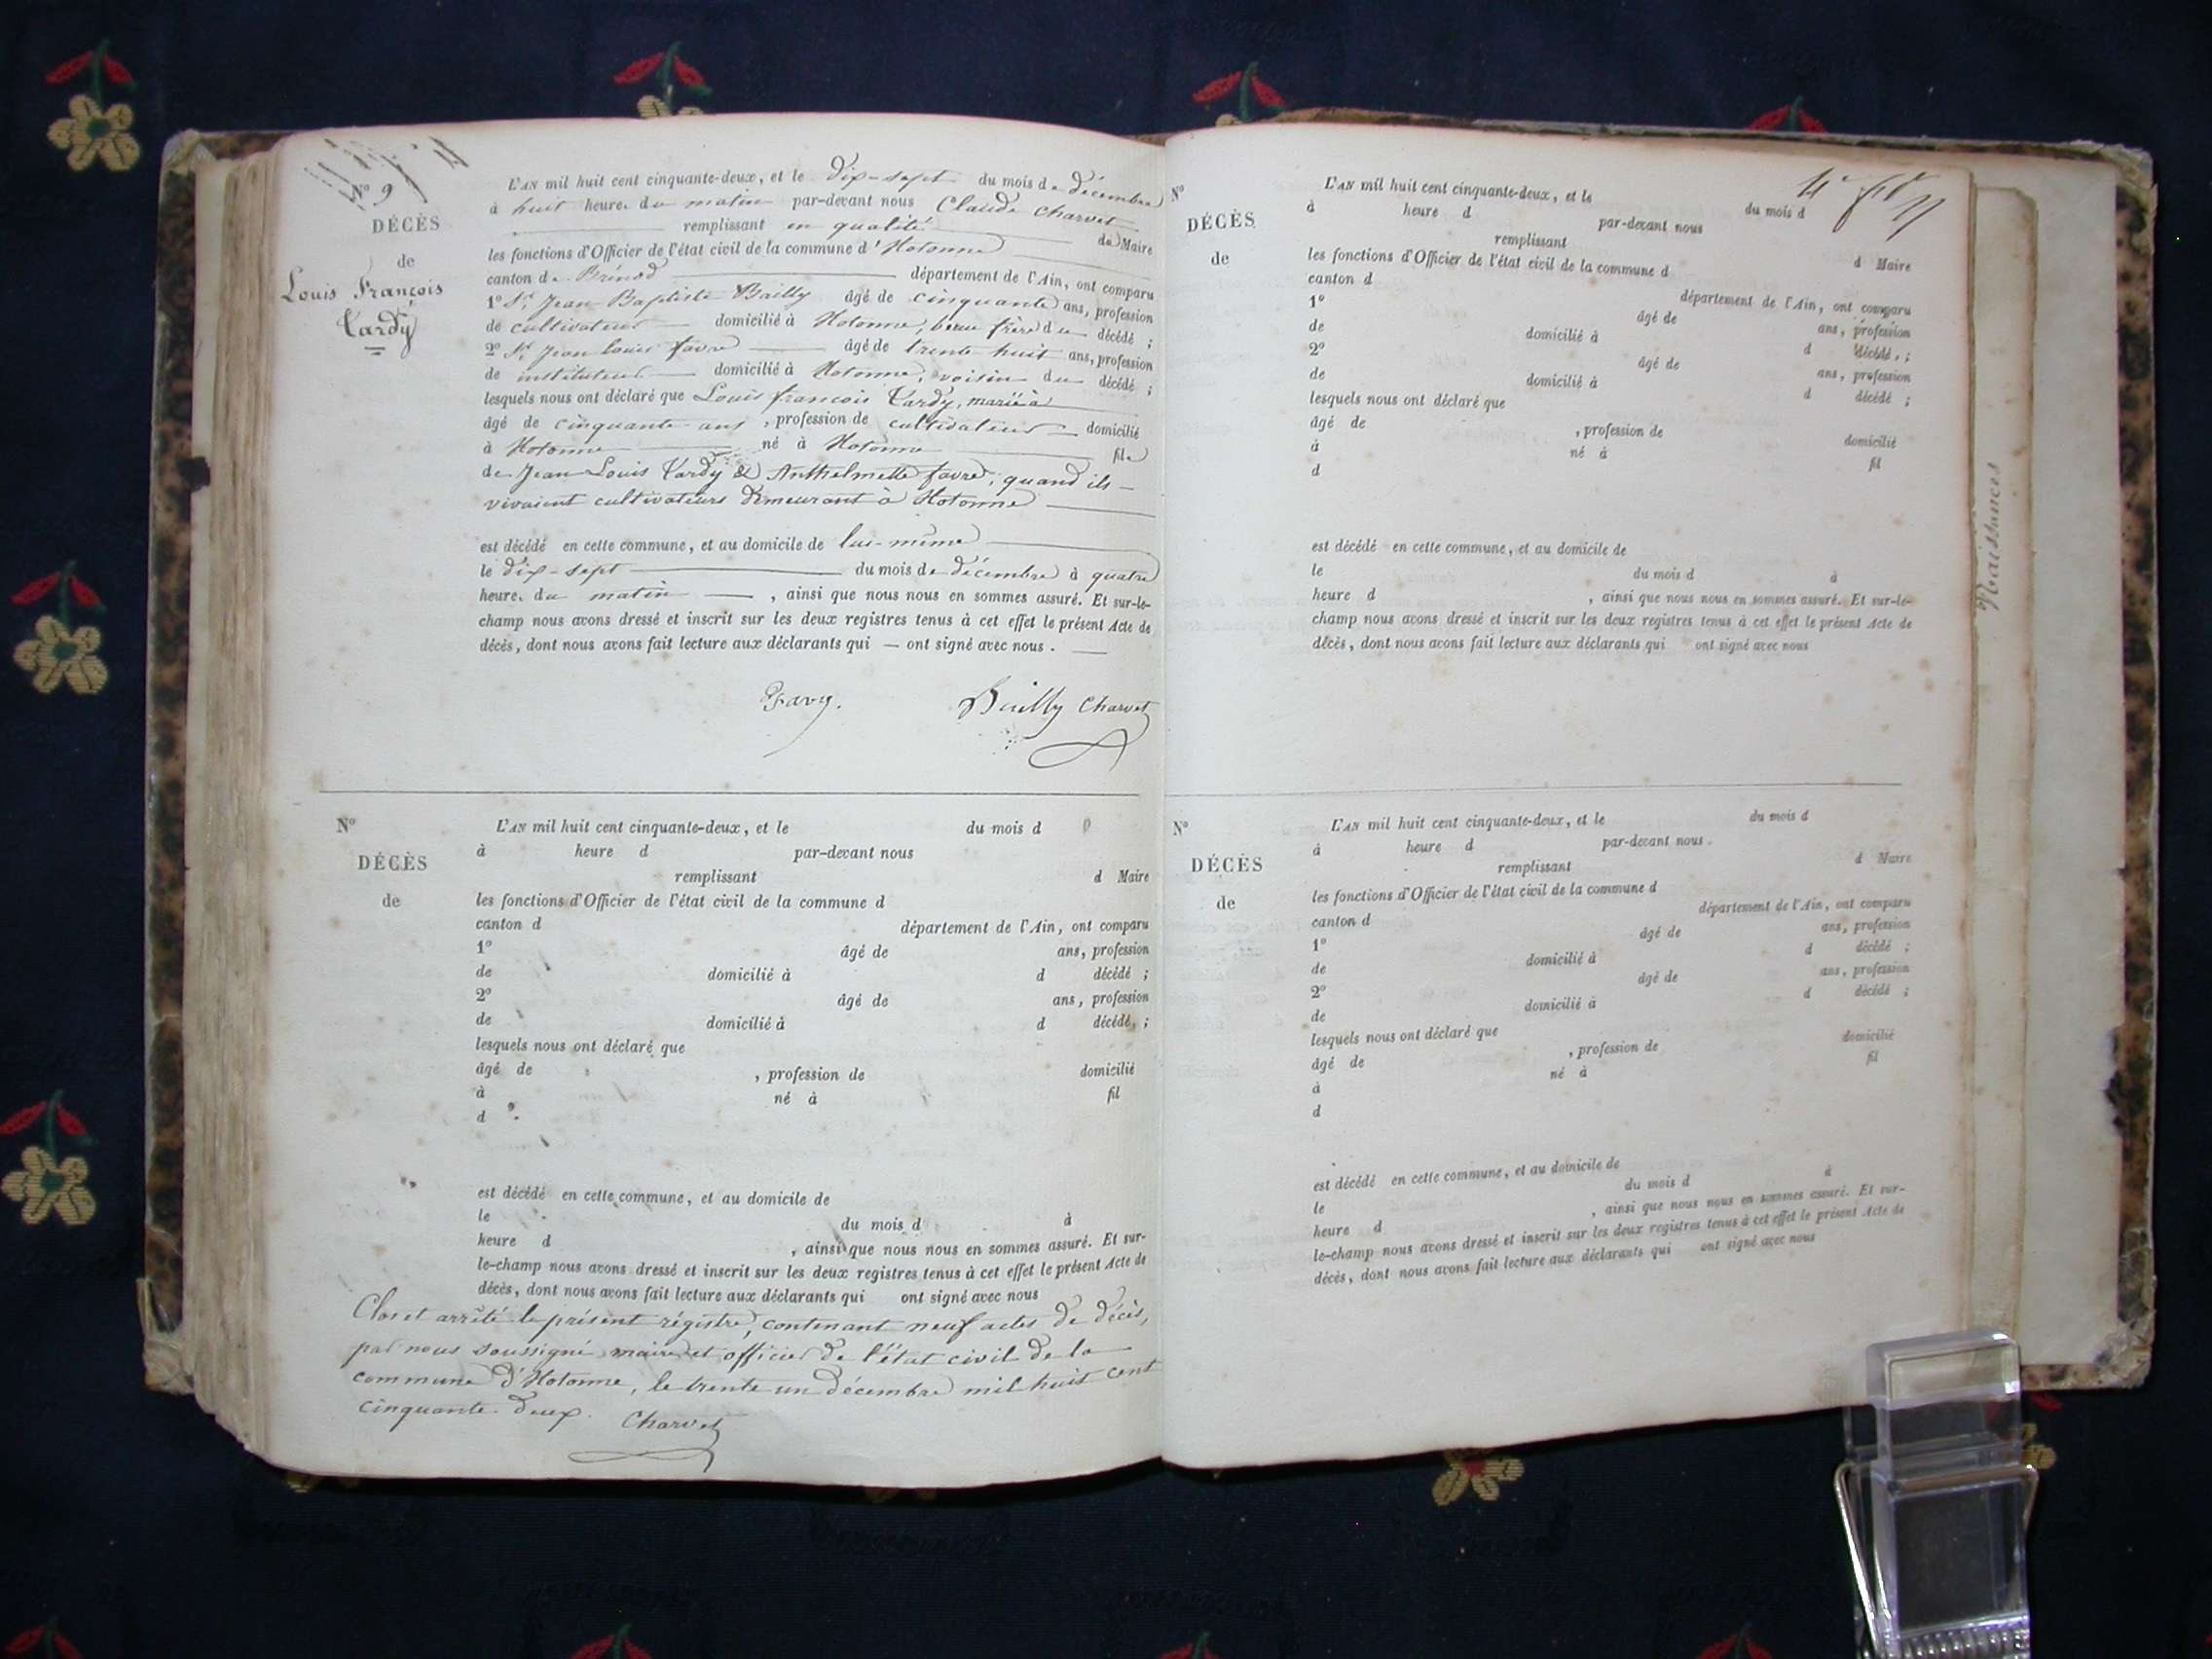 N° 9
DÉCÈS
de
Louis François
Tardy
L'AN mil huit cent cinquante-deux, et le dix-sept du mois de décembre
à huit heure du matin par-devant nous Claude Charvet
remplissant en qualité de Maire
les fonctions d'Officier de l'état civil de la commune d'Hotonne
canton de Brénod département de l'Ain, ont comparu
1° Sr. Jean Baptiste Bailly âgé de cinquante ans, profession
de cultivateur domicilié à Hotonne, beau frère du décédé ;
2° Sr. Jean louis favre âgé de trente huit ans, profession
de instituteur domicilié à Hotonne, voisin du décédé ;
lesquels nous ont déclaré que Louis francois Tardy, marié à
âgé de cinquante ans, profession de cultivateur domicilié
à Hotonne né à Hotonne fils
de Jean Louis Tardy & Anthelmette favre, quand ils
vivaient cultivateurs demeurant à Hotonne
est décédé en cette commune, et au domicile de lui-même
le dix-sept du mois de décembre à quatre
heure du matin , ainsi que nous nous en sommes assuré. Et sur-le-
champ nous avons dressé et inscrit sur les deux registres tenus à cet effet le présent Acte de
décès, dont nous avons fait lecture aux déclarants qui — ont signé avec nous.
Bailly Charvet
N°
DÉCÈS
de
L'AN mil huit cent cinquante-deux, et le du mois d
à heure d par-devant nous
remplissant d Maire
les fonctions d'Officier de l'état civil de la commune d
canton d département de l'Ain, ont comparu
1° âgé de ans, profession
de domicilié à d décédé ;
2° âgé de ans, profession
de domicilié à d décédé, ;
lesquels nous ont déclaré que
âgé de , profession de domicilié
à né à fil
d
est décédé en cette commune, et au domicile de
le du mois d à
heure d , ainsi que nous nous en sommes assuré. Et sur-
le-champ nous avons dressé et inscrit sur les deux registres tenus à cet effet le présent Acte de
décès, dont nous avons fait lecture aux déclarants qui ont signé avec nous
Clos et arrêté le présent régistre, contenant neuf actes de décès,
par nous soussigné maire et officier de l'état civil de la
commune d'Hotonne, le trente un décembre mil huit cent
cinquante-deux. Charvet
N°
DÉCÈS
de
L'AN mil huit cent cinquante-deux, et le du mois d
à heure d par-devant nous
remplissant d Maire
les fonctions d'Officier de l'état civil de la commune d
canton d département de l'Ain, ont comparu
1° âgé de ans, profession
de domicilié à d décédé, ;
2° âgé de ans, profession
de domicilié à d décédé ;
lesquels nous ont déclaré que
âgé de , profession de domicilié
à né à fil
d
est décédé en cette commune, et au domicile de
le du mois d à
heure d , ainsi que nous nous en sommes assuré. Et sur-le-
champ nous avons dressé et inscrit sur les deux registres tenus à cet effet le présent Acte de
décès, dont nous avons fait lecture aux déclarants qui ont signé avec nous
N°
DÉCÈS
de
L'AN mil huit cent cinquante-deux, et le du mois d
à heure d par-devant nous
remplissant d Maire
les fonctions d'Officier de l'état civil de la commune d
canton d département de l'Ain, ont comparu
1° âgé de ans, profession
de domicilié à d décédé ;
2° âgé de ans, profession
de domicilié à d décédé ;
lesquels nous ont déclaré que
âgé de , profession de domicilié
à né à fil
d
est décédé en cette commune, et au domicile de
le du mois d à
heure d , ainsi que nous nous en sommes assuré. Et sur-
le-champ nous avons dressé et inscrit sur les deux registres tenus à cet effet le présent Acte de
décès, dont nous avons fait lecture aux déclarants qui ont signé avec nous
Naissances